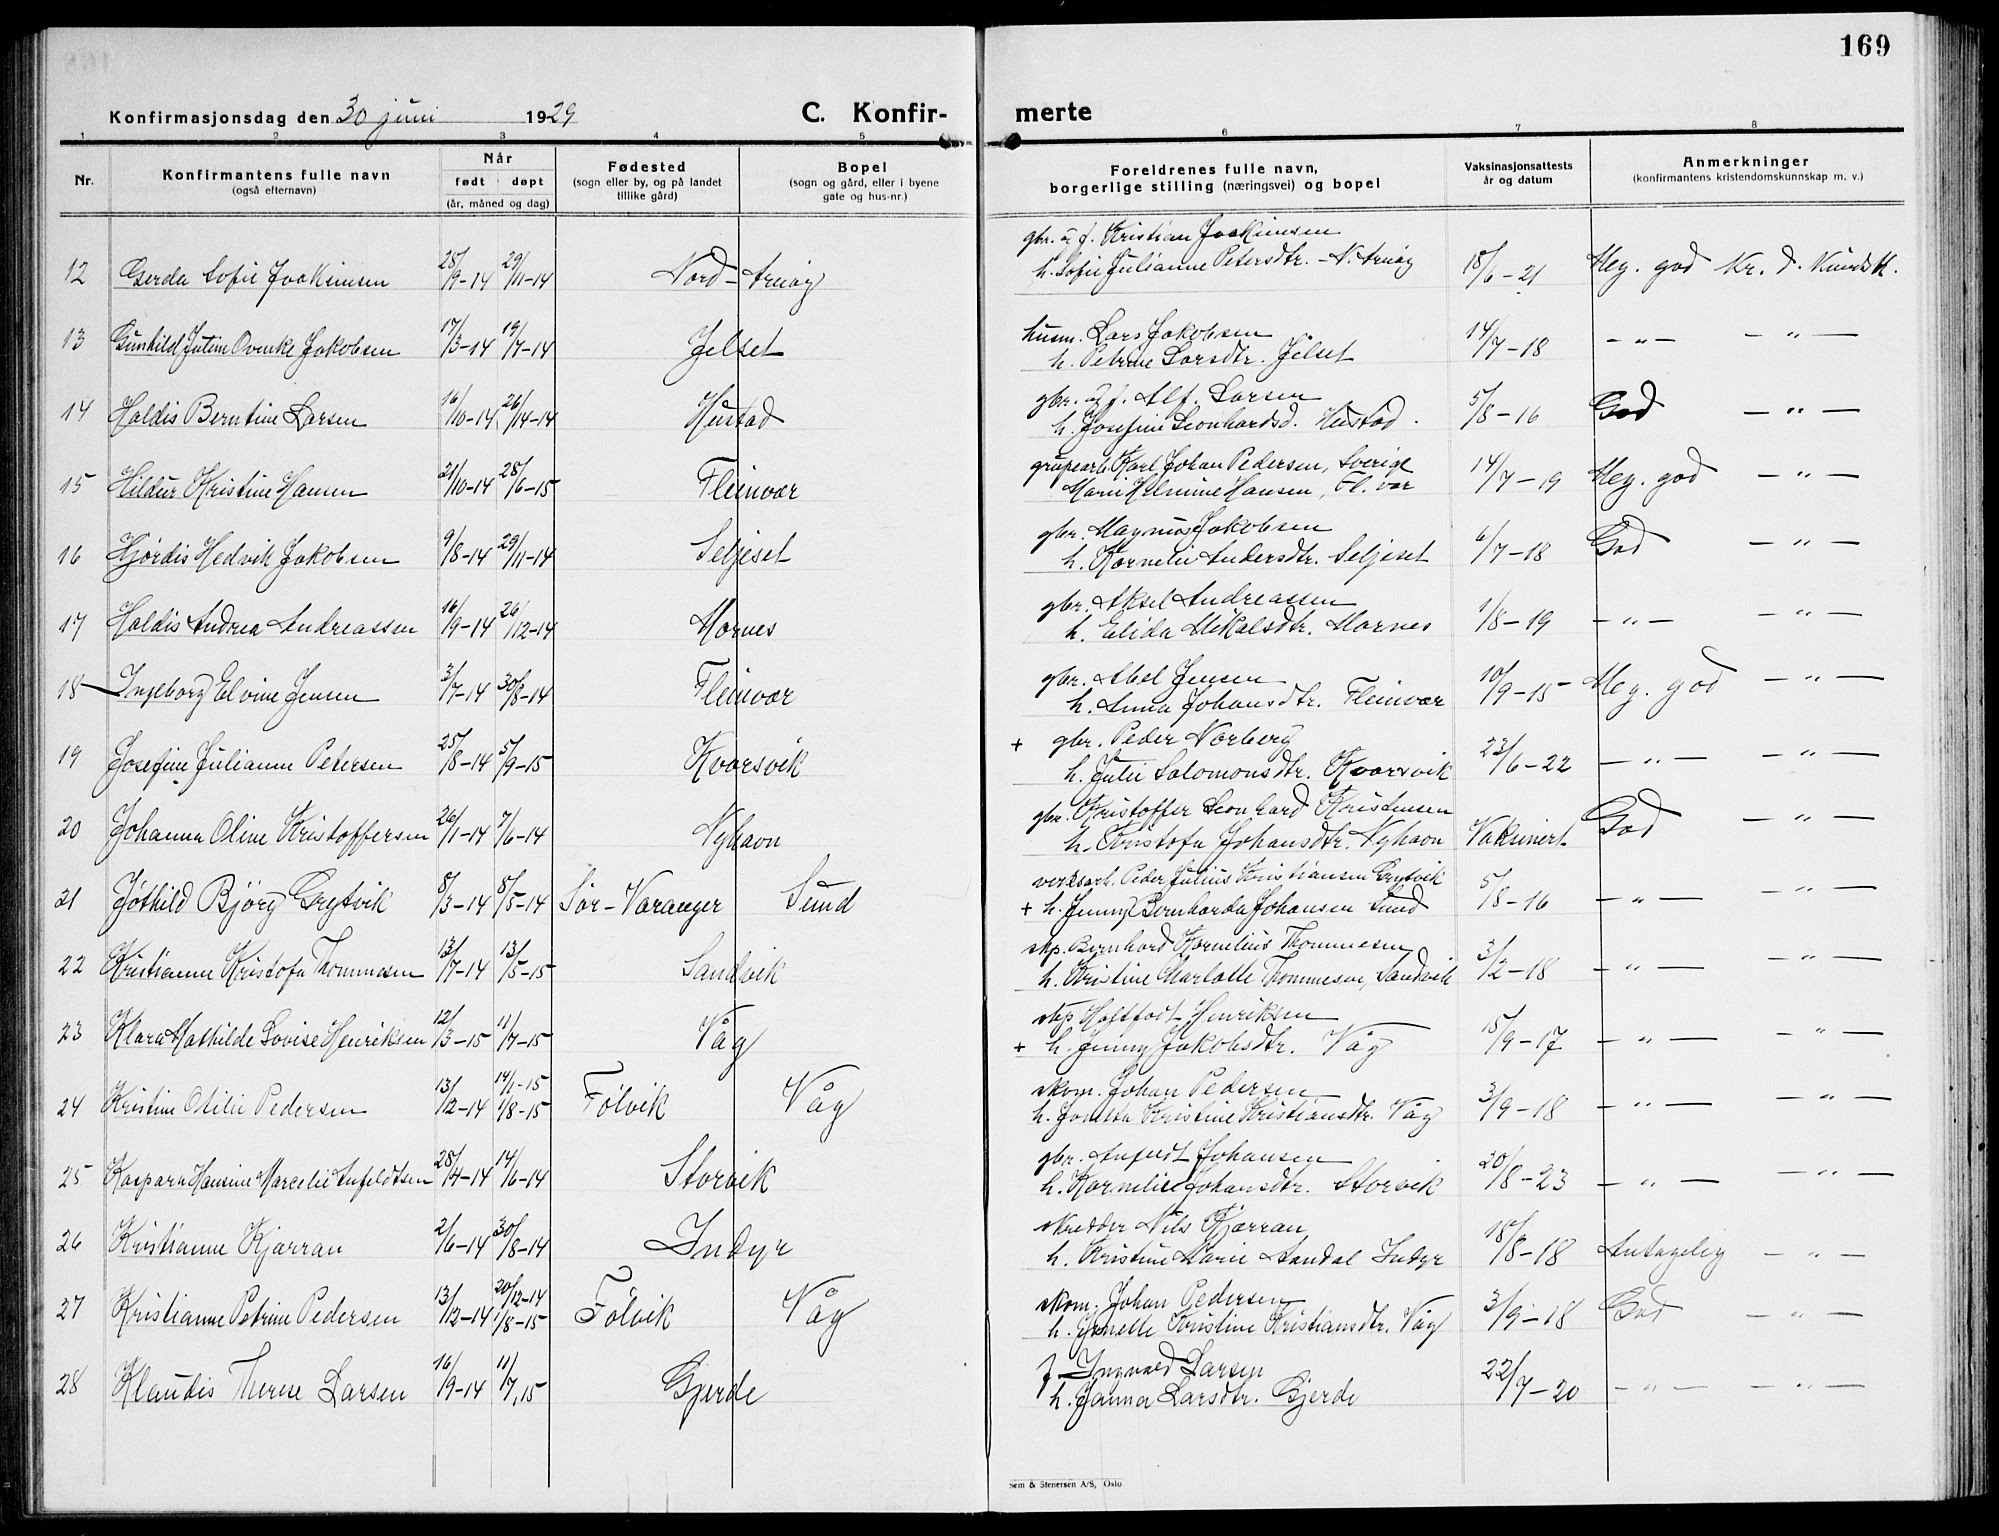 169
Konfirmasjonsdag den 30 juni 1929 C. Konfirmerte
1 2 3 4 5 6 7 8
Nr. Konfirmantens fulle navn (også efternavn) Når født døpt (år, måned og dag) Fødested (sogn eller by, og på landet tillike gård) Bopel (sogn og gård, eller i byene gate og hus-nr.) Foreldrenes fulle navn, borgerlige stilling (næringsvei) og bopel Vaksinasjonsattests år og datum Anmerkninger (konfirmantens kristendomskunnskap m. v.)
gbr. & f. Kristian Joakimsen
12 Gerda Sofie Joakimsen 28/9-14 29/11-14 Nord-Arnøy h. Sofie Julianne Petersdtr. - N. Arnøy 18/6-21 Meg. god Kr. d. Kundsk.
husm. Lars Jakobsen
13 Gunhild Jutine Ovinke Jakobsen 17/3-14 19/7-14 Jelset h. Petrine Larsdtr. Jelset 14/7-18 - " - - " -
gbr. & f. Alf. Larsen
14 Haldis Berntine Larsen 16/10-14 26/14-14 Hustad h. Josefine Leonhardsd. Hustad. 5/8-16 God - " -
grupearb. Karl Johan Pedersen, Sverige
15 Hildur Kristine Hansen 21/10-14 28/6-15 Fleinvær Marie Helmine Hansen, Fl.vær 14/7-19 Meg. god - " -
gbr. Magnus Jakobsen
16 Hjørdis Hedvik Jakobsen 9/8-14 29/11-14 Seljeset h. Kornelie Andersdtr. Seljeset 6/7-18 God - " -
gbr. Aksel Andreassen
17 Haldis Andrea Andreassen 16/9-14 26/12-14 Mornes h. Elida Mikalsdtr. Mornes 1/8-19 - " - - " -
gbr. Abel Jensen
18 Ingeborg Elvine Jensen 3/7-14 30/8-14 Fleinvær h. Anna Johansdtr. Fleinvær 10/9-15 Meg. god - " -
+ gbr. Peder Norberg
19 Josefine Julianne Petersen 25/8-14 5/9-15 Kvarsvik h. Julie Salomonsdtr. Kvarsvik 23/6-22 - " - - " -
gbr. Kristoffer Leonhard Kristensen
20 Johanna Oline Kristoffersen 26/1-14 7/6-14 Nyhavn h. Kristofa Johansdtr. Nyhavn Vaksinert God - " -
verksarb. Peder Julius Kristiansen Grytvik
21 Jøthild Bjørg Grytvik 8/3-14 8/5-14 Sør-Varanger Sund + h. Jenny Bernharda Johansen Sund 5/8-16 - " - - " -
skp. Bernhard Kornelius Thommesen
22 Kristianne Kristofa Thommesen 13/7-14 13/5-15 Sandvik h. Kristine Charlotte Thommesen, Sandvik 3/2-18 - " - - " -
skp Hartfodt Henriksen
23 Klara Mathilde Lovise Henriksen 12/3-15 11/7-15 Våg + h. Jenny Jakobsdtr. Våg 15/9-17 - " - - " -
skom. Johan Pedersen
24 Kristine Otilie Pedersen 13/12-14 14/1-15 1/8-15 Følvik Våg h. Jonetta Kristine Kristiansdtr. Våg 3/9-18 - " - - " -
gbr. Anfeldt Johansen
25 Kaspara Hansine Marcelie Anfeldtsen 28/4-14 14/6-14 Storvik h. Kornelie Johansdtr. Storvik 20/8-23 - " - - " -
skredder Nils Kjærran
26 Kristianne Kjærran 2/6-14 30/8-14 Indyr h. Kristine Marie Aandal Indyr 18/8-18 Antagelig - " -
skom. Johan Pedersen
27 Kristianne Petrine Pedersen 13/12-14 20/12-14 1/8-15 Følvik Våg h. Jonette Kristine Kristiansdtr. Våg 3/9-18 God - " -
f. Ingvald Larsen
28 Klaudis Therese Larsen 16/9-14 11/7, 15 Gjerde h. Janna Larsdtr. Gjerde 22/7-20 - " - - " -
Sem & Stenersen A/S, Oslo